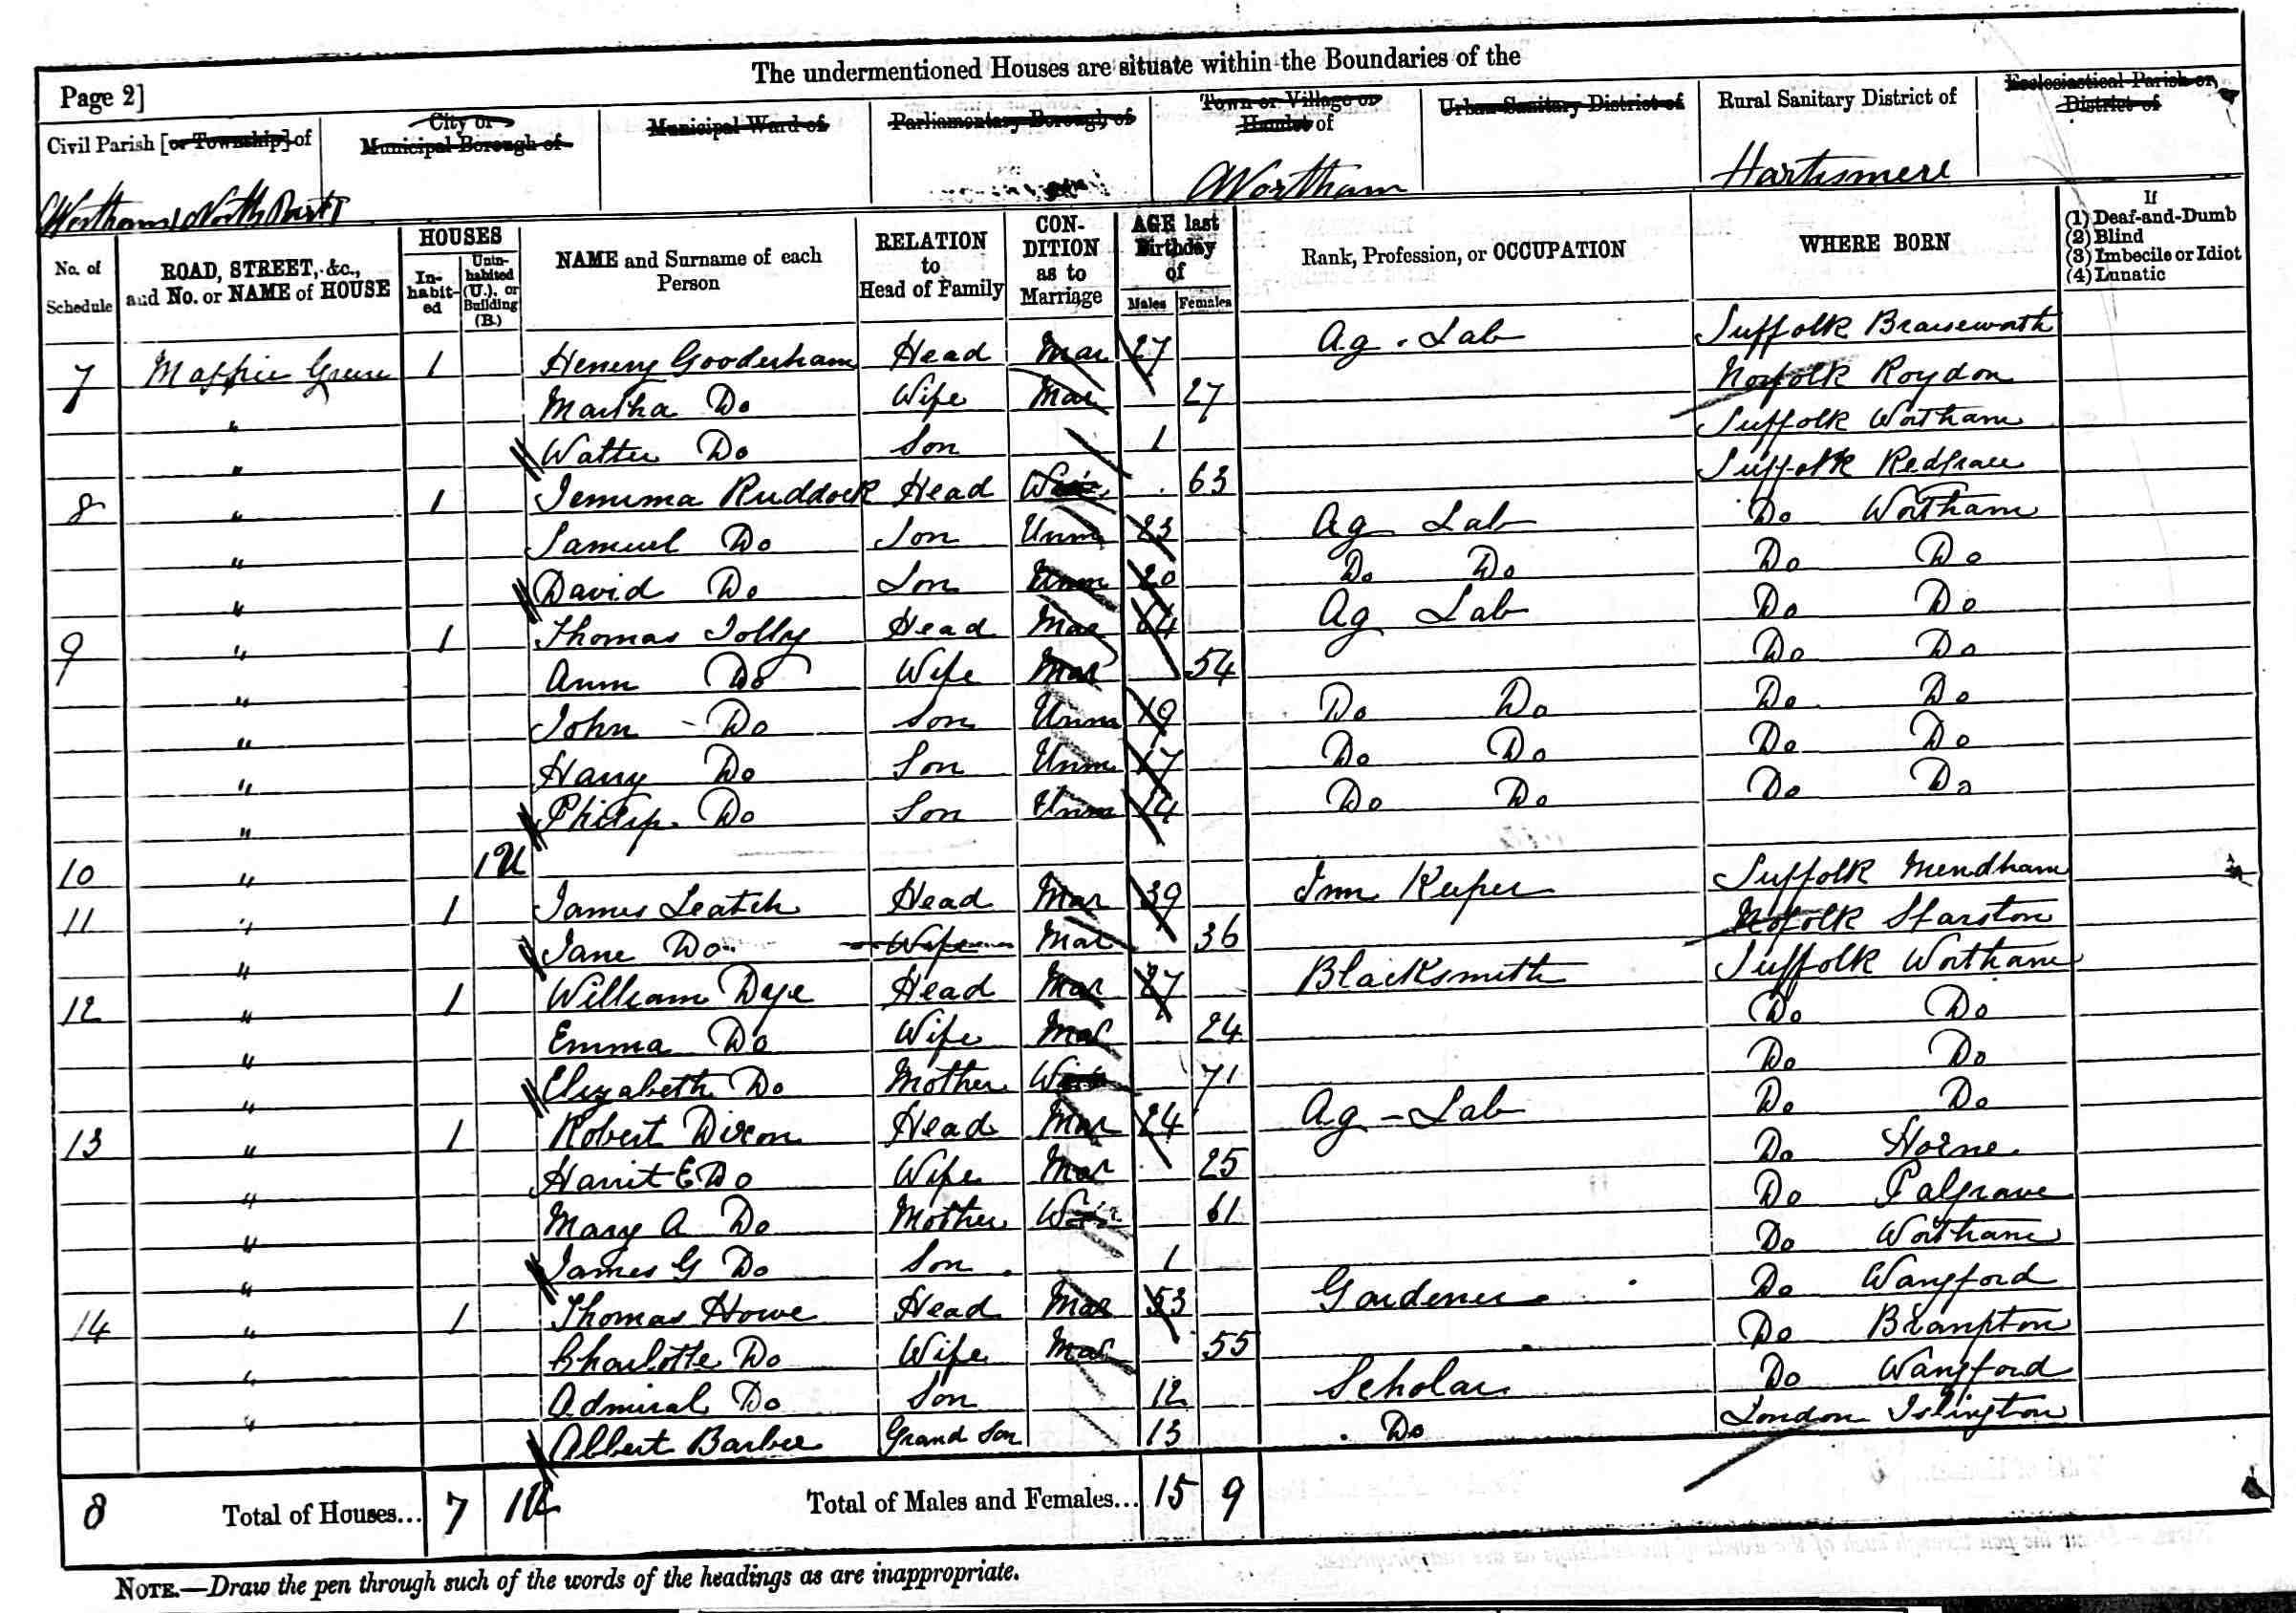 The undermentioned Houses are situate within the Boundaries of the
Page 2]
Civil Parish [or Township] of
City or Municipal Borough of
Municipal Ward of
Parliamentary Borough of
Town or Village or Hamlet of
Urban Sanitary District of
Rural Sanitary District of
Ecclesiastical Parish or District of
Wortham North Part
Wortham
Hartismere
No. of Schedule
ROAD, STREET, &c., and No. or NAME of HOUSE
HOUSES
In-habit-ed
Unin-habited (U.), or Building (B.)
NAME and Surname of each Person
RELATION to Head of Family
CON-DITION as to Marriage
AGE last Birthday of
Males
Females
Rank, Profession, or OCCUPATION
WHERE BORN
If
(1) Deaf-and-Dumb
(2) Blind
(3) Imbecile or Idiot
(4) Lunatic
7 Magpie Green 1 Henery Gooderham Head Mar 27 Ag. Lab Suffolk Braiseworth
" Martha Do Wife Mar 27 Norfolk Roydon
" Walter Do Son 1 Suffolk Wortham
8 " 1 Jemima Ruddock Head Wid 63 Suffolk Redgrave
" Samuel Do Son Unm 23 Ag Lab Do Wortham
" David Do Son Unm 20 Do Do Do Do
9 " 1 Thomas Jolly Head Mar 64 Ag Lab Do Do
" Ann Do Wife Mar 54 Do Do
" John Do Son Unm 19 Do Do Do Do
" Harry Do Son Unm 17 Do Do Do Do
" Philip Do Son Unm 14 Do Do Do Do
10 " 1U
11 " 1 James Leatch Head Mar 39 Inn Keeper Suffolk Mendham
" Jane Do Wife Mar 36 Norfolk Starston
12 " 1 William Dye Head Mar 27 Blacksmith Suffolk Wortham
" Emma Do Wife Mar 24 Do Do
" Elizabeth Do Mother Wid 71 Do Do
13 " 1 Robert Dixon Head Mar 24 Ag - Lab Do Do
" Harrit E Do Wife Mar 25 Do Horne
" Mary A Do Mother Wid 61 Do Palgrave
" James G Do Son 1 Do Wortham
14 " 1 Thomas Howe Head Mar 53 Gardener Do Wangford
" Charlotte Do Wife Mar 55 Do Brampton
" Admiral Do Son 12 Scholar Do Wangford
" Albert Barber Grand Son 13 Do London Islington
8 Total of Houses... 7 1U Total of Males and Females... 15 9
NOTE.—Draw the pen through such of the words of the headings as are inappropriate.